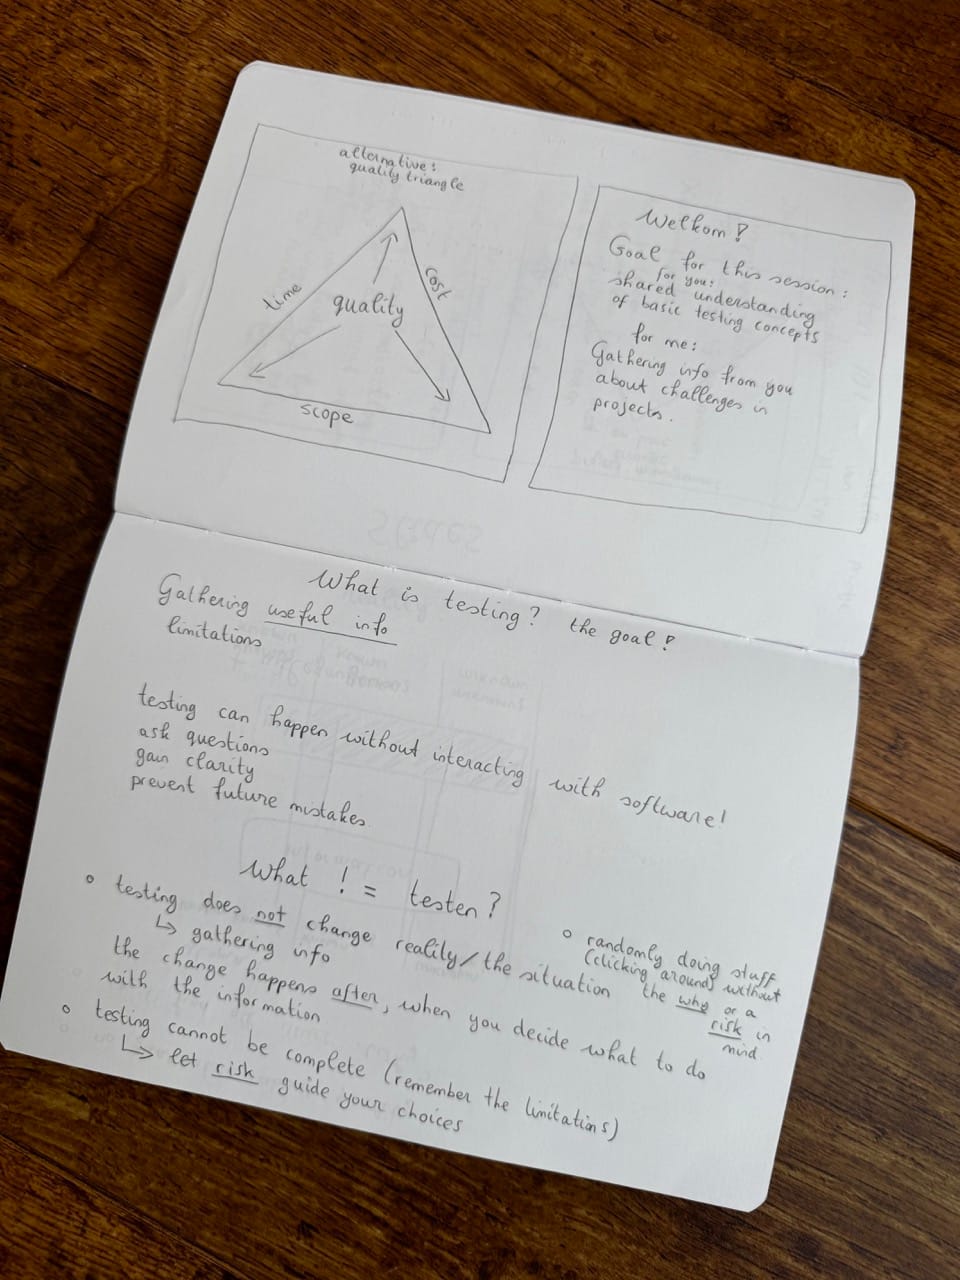 alternative:
quality triangle
time
cost
quality
scope
Welkom!
Goal for this session:
for you:
shared understanding
of basic testing concepts
for me:
Gathering info from you
about challenges in
projects.
What is testing? the goal!
Gathering useful info
limitations
testing can happen without interacting with software!
ask questions
gain clarity
prevent future mistakes
What != testen?
o testing does not change reality/the situation
↳ gathering info
the change happens after, when you decide what to do
with the information
o testing cannot be complete (remember the limitations)
↳ let risk guide your choices
o randomly doing stuff
(clicking around) without
the why or a
risk in
mind